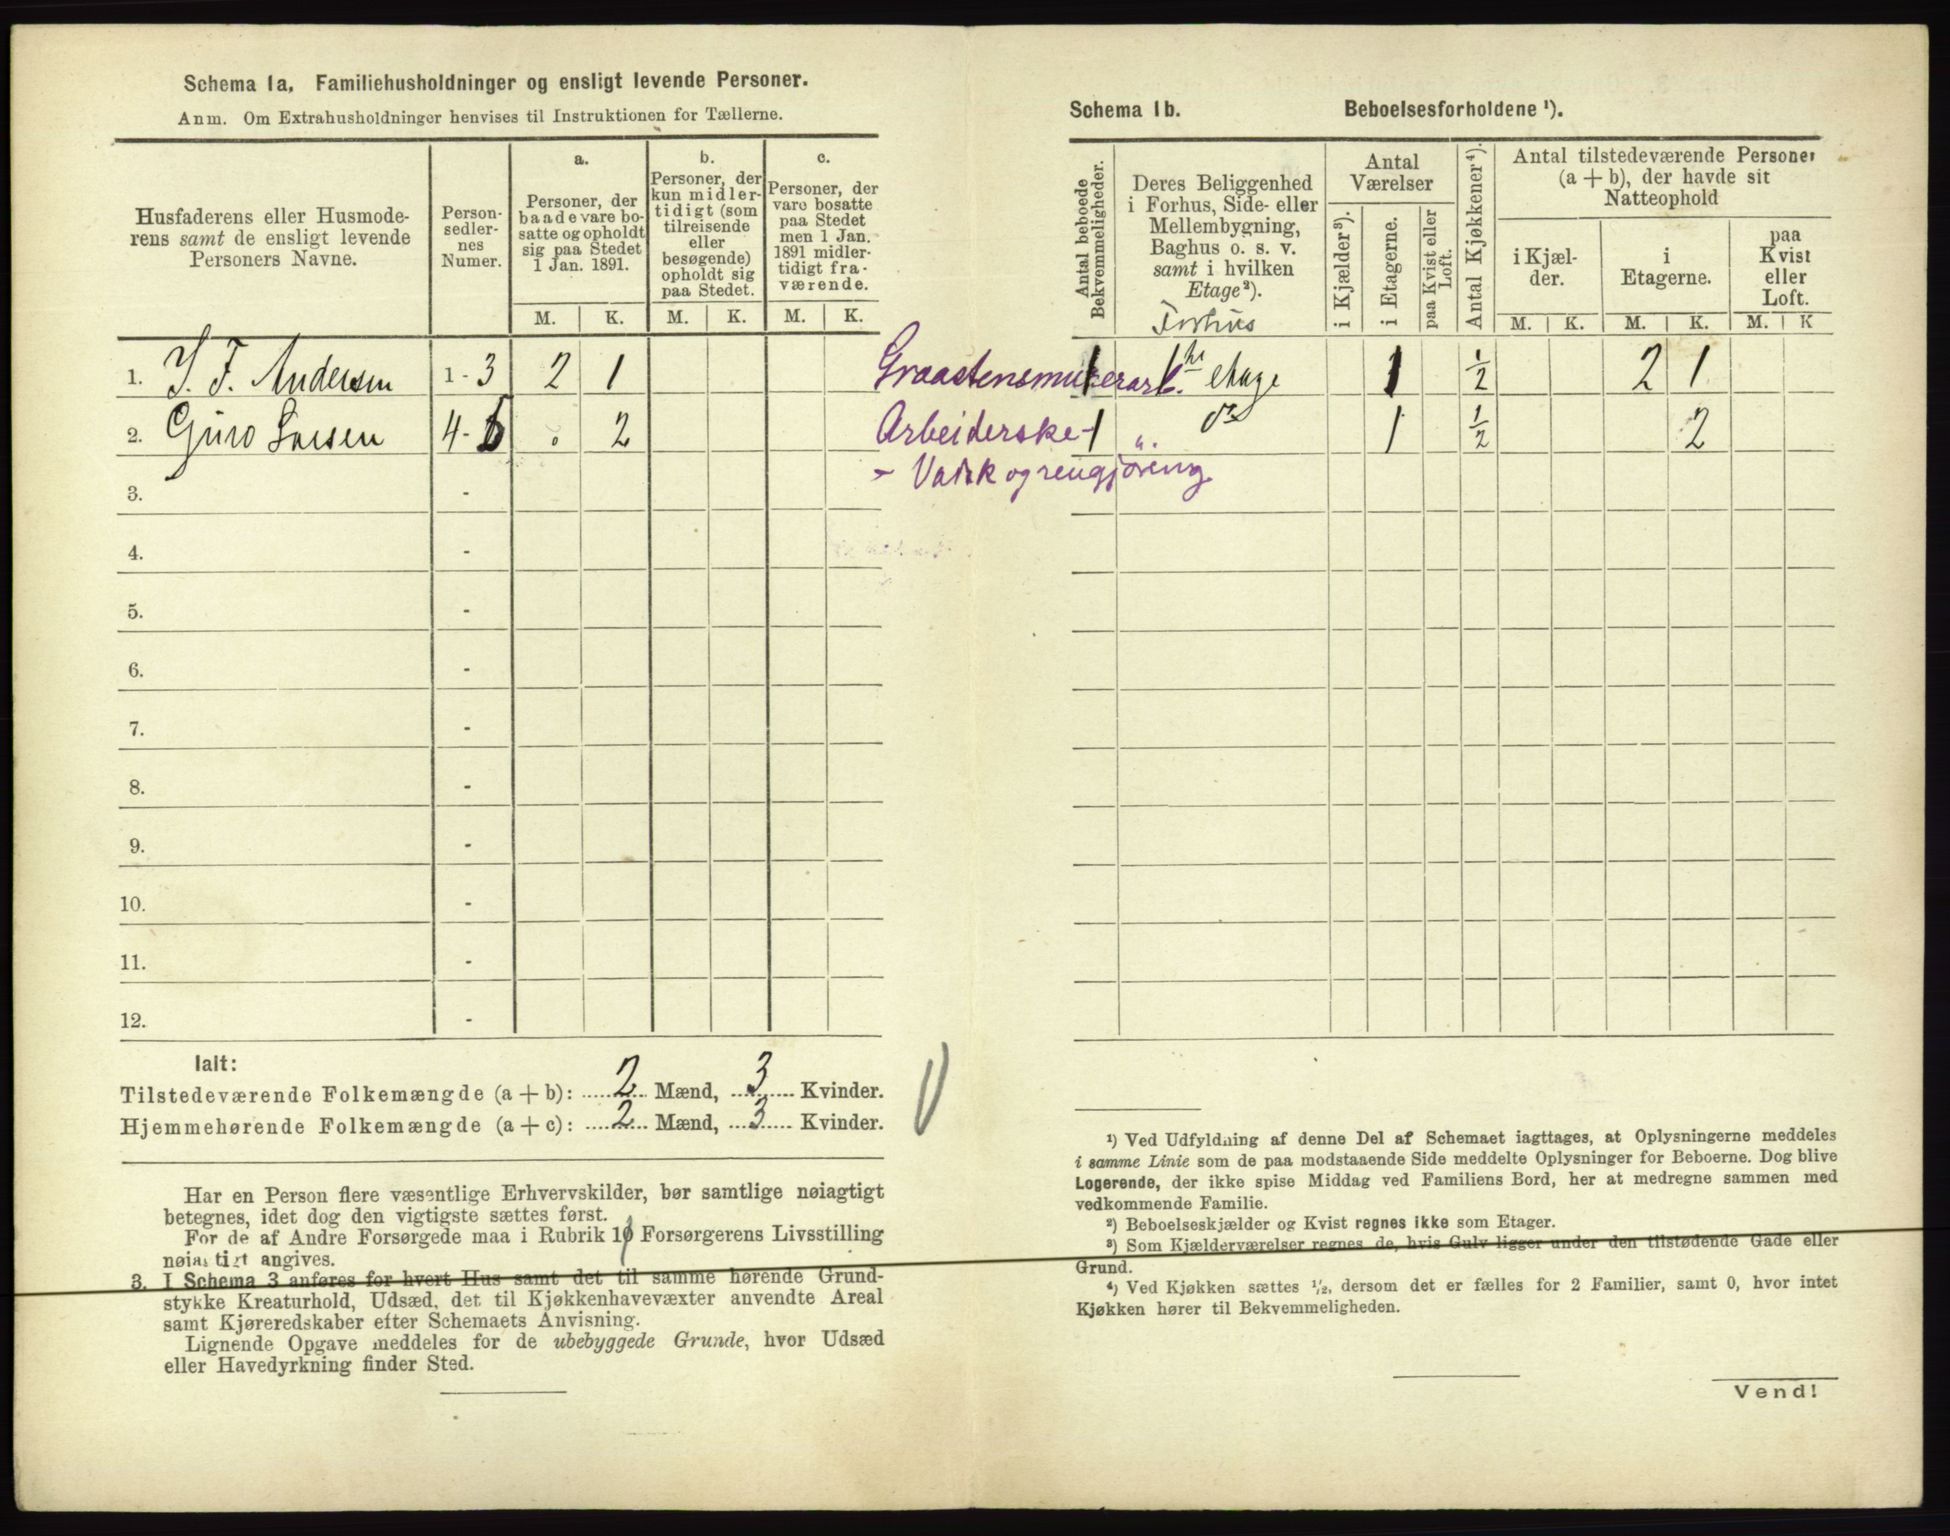 Schema 1a, Familiehusholdninger og ensligt levende Personer.
Anm. Om Extrahusholdninger henvises til Instruktionen for Tællerne.
Husfaderens eller Husmode-
rens samt de ensligt levende
Personers Navne.
Person-
sedler-
nes
Numer.
a.
Personer, der
baade vare bo-
satte og opholdt
sig paa Stedet
1 Jan. 1891.
b.
Personer, der
kun midler-
tidigt (som
tilreisende
eller
besøgende)
opholdt sig
paa Stedet.
c.
Personer, der
vare bosatte
paa Stedet
men 1 Jan.
1891 midler-
tidigt fra-
værende.
M. K. M. K. M. K.
1. I. F. Andersen 1 - 3 2 1
2. Guro Larsen 4 - 5 0 2
3. -
4. -
5. -
6. -
7. -
8. -
9. -
10. -
11. -
12. -
Ialt:
Tilstedeværende Folkemængde (a + b): 2 Mænd, 3 Kvinder.
Hjemmehørende Folkemængde (a + c): 2 Mænd, 3 Kvinder.
Har en Person flere væsentlige Erhvervskilder, bør samtlige nøiagtigt
betegnes, idet dog den vigtigste sættes først.
For de af Andre Forsørgede maa i Rubrik 10 Forsørgerens Livsstilling
nøiagtigt angives.
3. I Schema 3 anføres for hvert Hus samt det til samme hørende Grund-
stykke Kreaturhold, Udsæd, det til Kjøkkenhavevæxter anvendte Areal
samt Kjøreredskaber efter Schemaets Anvisning.
Lignende Opgave meddeles for de ubebyggede Grunde, hvor Udsæd
eller Havedyrkning finder Sted.
Schema 1b. Beboelsesforholdene ¹).
Antal beboede
Bekvemmeligheder.
Deres Beliggenhed
i Forhus, Side- eller
Mellembygning,
Baghus o. s. v.
samt i hvilken
Etage²).
Forhus
Antal
Værelser
i Kjælder³).
i Etagerne.
paa Kvist eller
Loft.
Antal Kjøkkener⁴).
Antal tilstedeværende Personer
(a + b), der havde sit
Natteophold
i Kjæl-
der.
i
Etagerne.
paa
Kvist
eller
Loft.
M. K. M. K. M. K
Graastensmurerarb. 1 1 etage 1 ½ 2 1
Arbeiderske- 1 „ do 1 ½ 2
- Vask og rengjøring
¹) Ved Udfyldning af denne Del af Schemaet iagttages, at Oplysningerne meddeles
i samme Linie som de paa modstaaende Side meddelte Oplysninger for Beboerne. Dog blive
Logerende, der ikke spise Middag ved Familiens Bord, her at medregne sammen med
vedkommende Familie.
²) Beboelseskjælder og Kvist regnes ikke som Etager.
³) Som Kjælderværelser regnes de, hvis Gulv ligger under den tilstødende Gade eller
Grund.
⁴) Ved Kjøkken sættes ¹/₂, dersom det er fælles for 2 Familier, samt 0, hvor intet
Kjøkken hører til Bekvemmeligheden.
Vend!